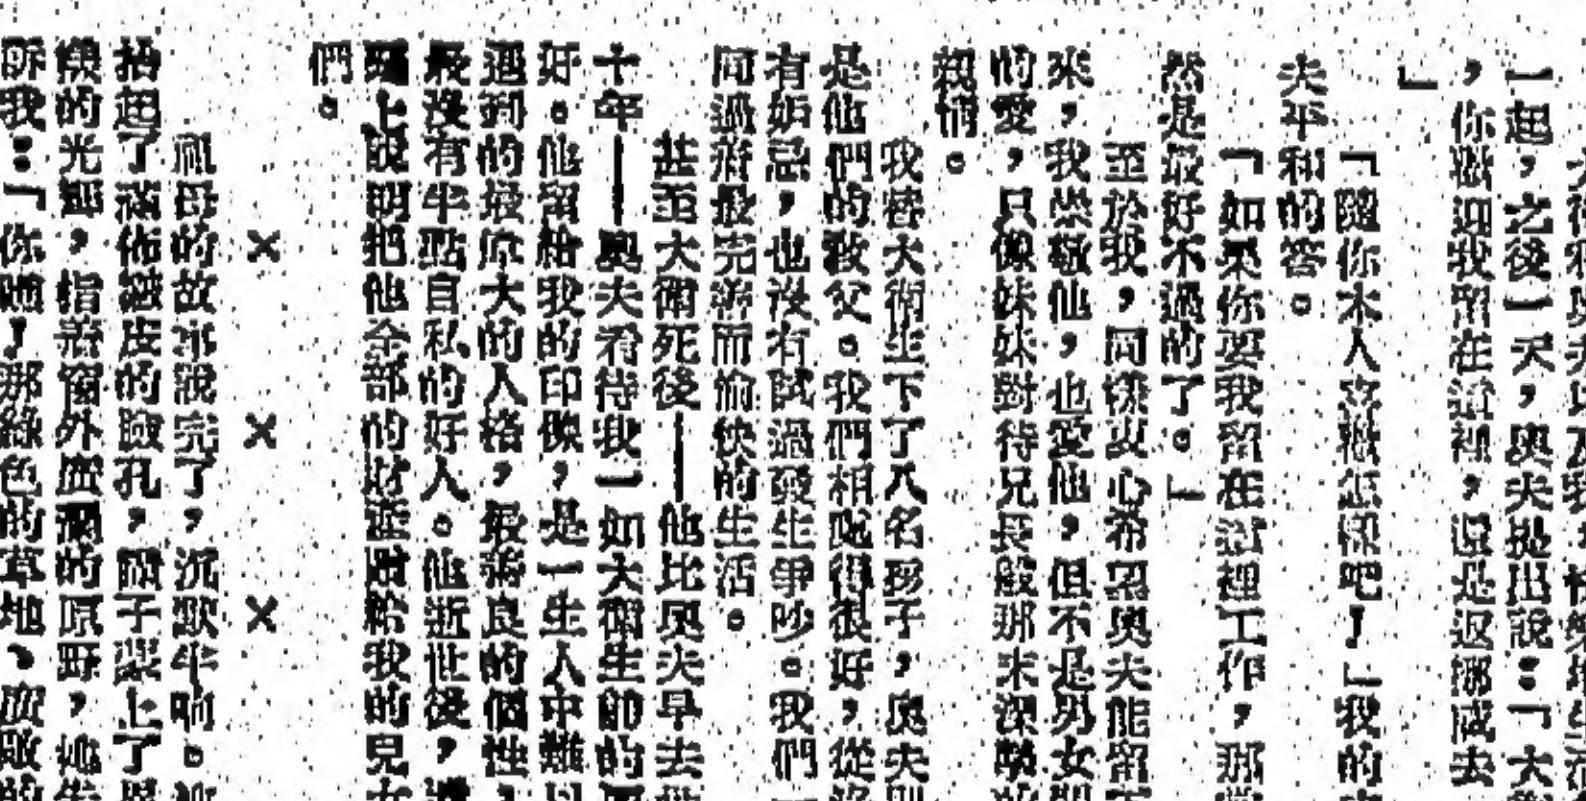 一起，之後一天，奧夫提出說：「大
，你歡迎我留在這裡，還是返挪威去
」
「隨你本人喜歡怎樣吧！」我的
夫平和的答。
「如果你要我留在這裡工作，那
然是最好不過的了。」
至於我，同樣衷心希望奧夫能留下
來，我崇敬他，也愛他，但不是男女
的愛，只像妹妹對待兄長般那末深摯的
親情。
我替大衛生下了八名孩子，奧夫則
是他們的教父。我們相處得很好，從
有妒忌，也沒有試過發生爭吵。我們
同過着最完滿而愉快的生活。
甚至大衛死後——他比奧夫早去世
十年——奧夫看待我一如大衛生前的
好。他留給我的印像，是一生人中難以
遇到的最偉大的人格，最善良的個性，
最沒有半點自私的好人。他逝世後，遺
囑上說明把他全部的財產贈給我的兒女
們。
× × ×
祖母的故事說完了，沉默半晌。她
抬起了滿佈皺皮的臉孔，鬍子梁上了
的光輝，指着窗外血斕的原野，她告
訴我：「你瞧！那綠色的草地、廣敞的